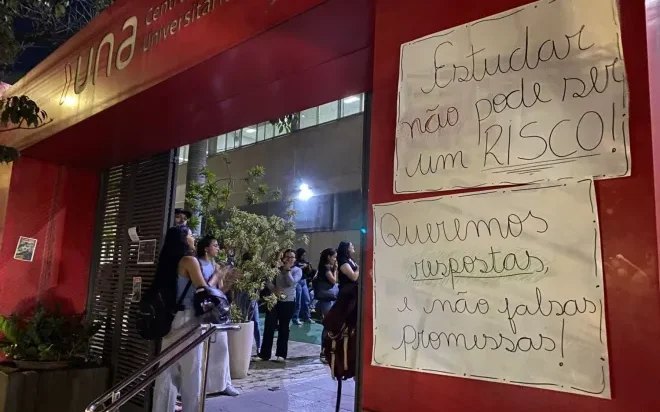 una
Centro
Universitário
Estudar
não pode ser
um RISCO!
Queremos
respostas,
e não falsas
promessas!